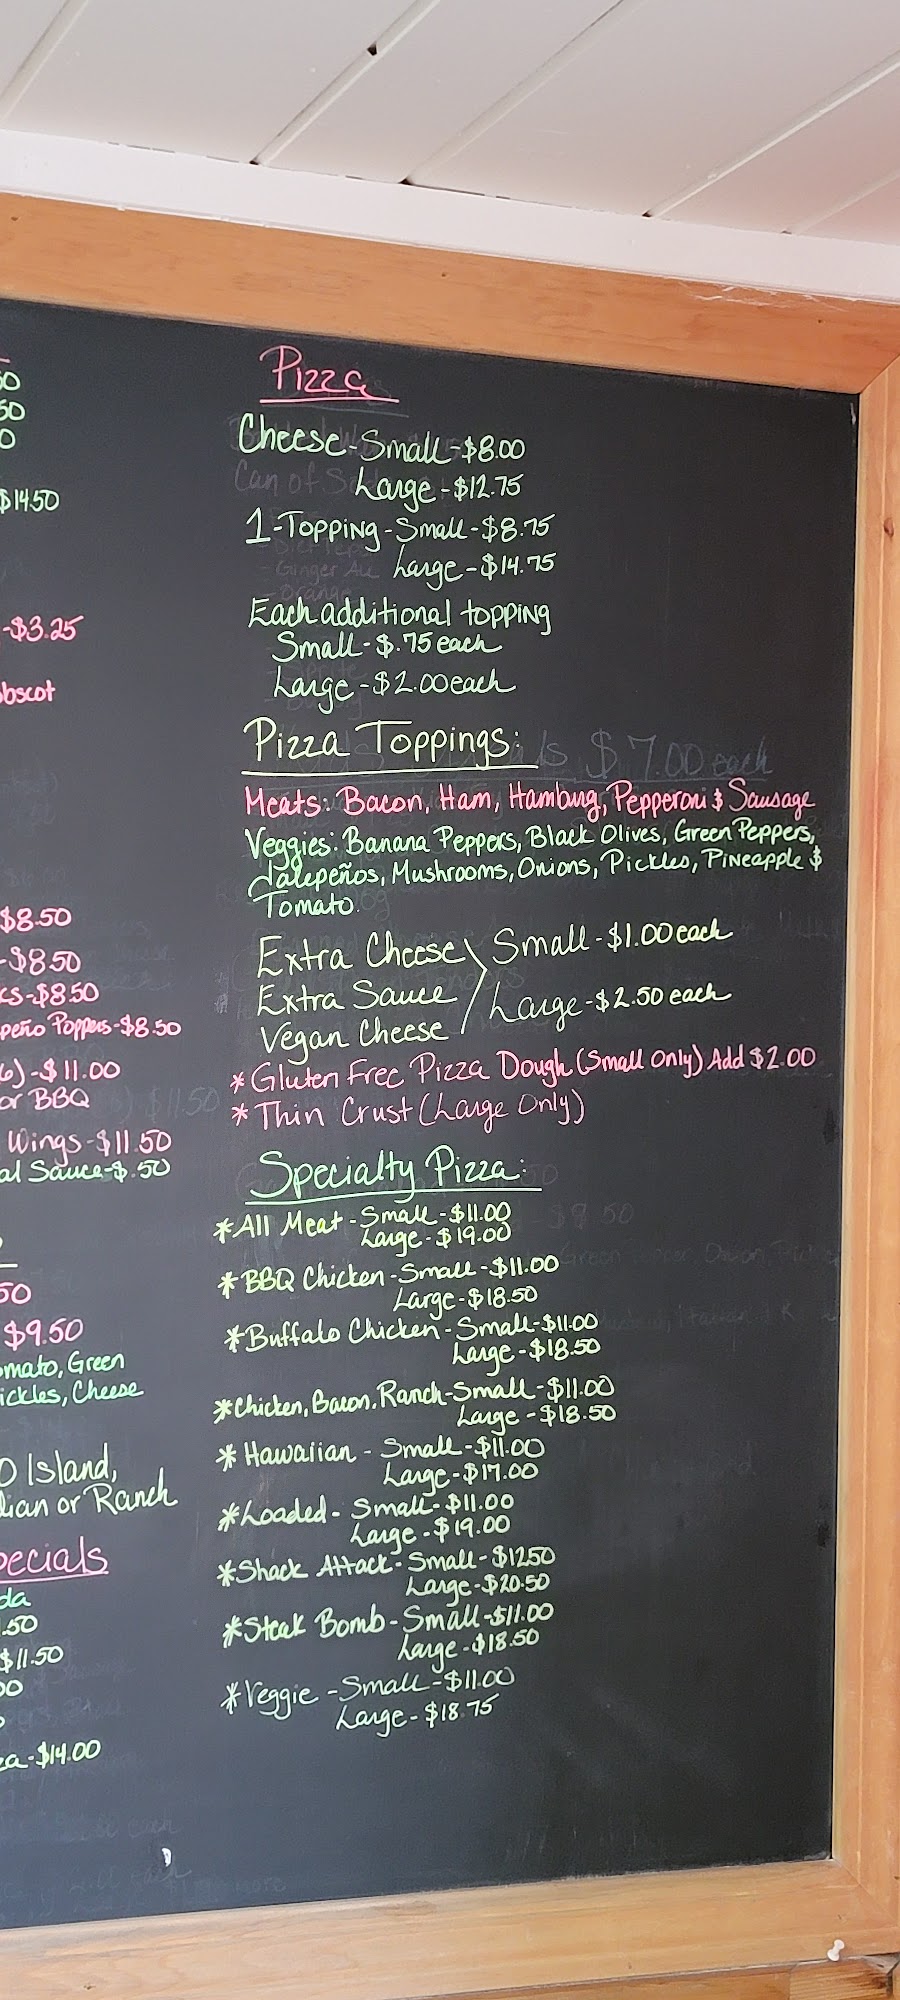 50
50
0
$14.50
-$3.25
obscot
$8.50
-$8.50
ks-$8.50
peño Poppers-$8.50
6)-$11.00
or BBQ
Wings-$11.50
al Sauce-$.50
50
$9.50
omato, Green
ickles, Cheese
0 Island,
lian or Ranch
pecials
da
.50
$11.50
00
za-$14.00
Pizza
Cheese-Small-$8.00
Large-$12.75
1-Topping-Small-$8.75
Large-$14.75
Each additional topping
Small-$.75 each
Large-$2.00 each
Pizza Toppings:
Meats: Bacon, Ham, Hamburg, Pepperoni & Sausage
Veggies: Banana Peppers, Black Olives, Green Peppers,
Jalepeños, Mushrooms, Onions, Pickles, Pineapple &
Tomato.
Extra Cheese Small-$1.00 each
Extra Sauce Large-$2.50 each
Vegan Cheese
*Gluten Free Pizza Dough (Small Only) Add $2.00
*Thin Crust (Large Only)
Specialty Pizza:
*All Meat-Small-$11.00
Large-$19.00
*BBQ Chicken-Small-$11.00
Large-$18.50
*Buffalo Chicken-Small-$11.00
Large-$18.50
*Chicken, Bacon, Ranch-Small-$11.00
Large-$18.50
*Hawaiian-Small-$11.00
Large-$17.00
*Loaded-Small-$11.00
Large-$19.00
*Shack Attack-Small-$12.50
Large-$20.50
*Steak Bomb-Small-$11.00
Large-$18.50
*Veggie-Small-$11.00
Large-$18.75